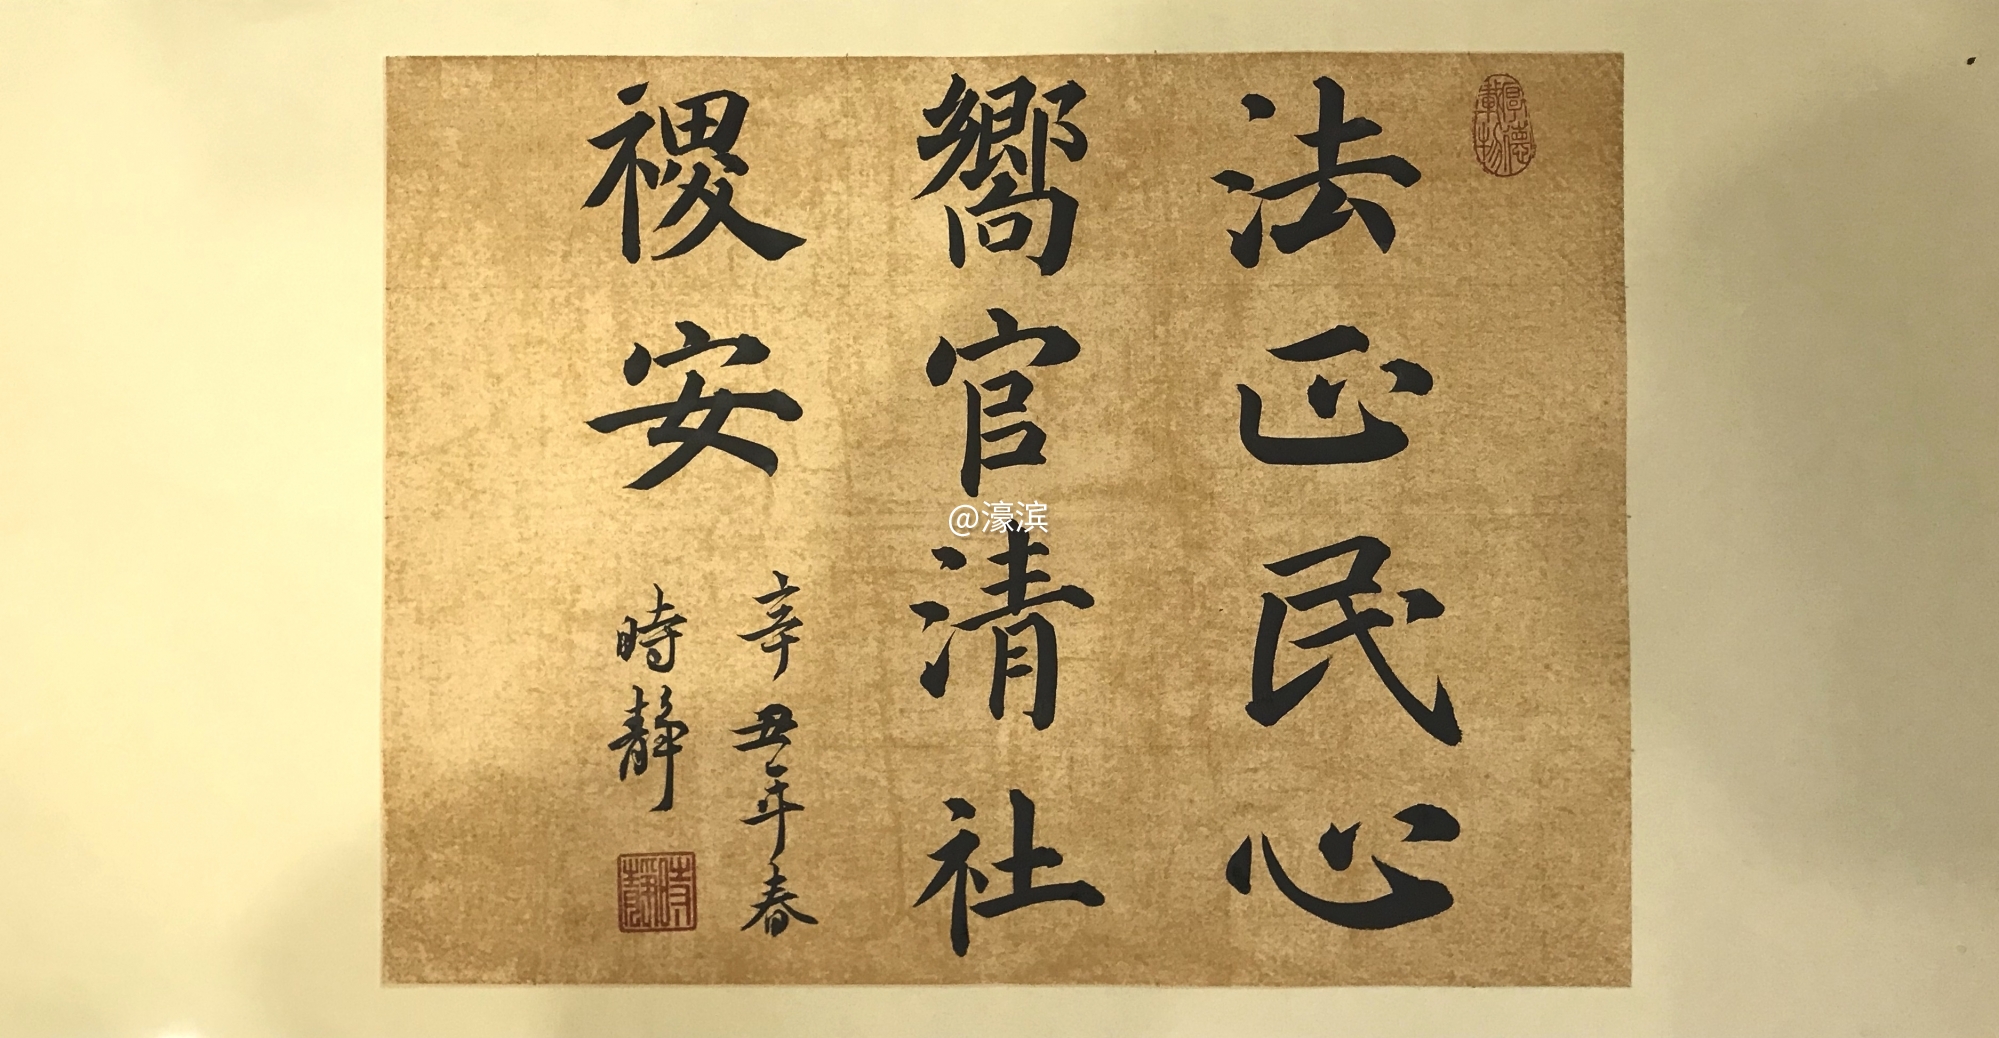 厚德載物
法正民心
嚮官清社
稷安
辛丑年春
時靜
時靜
@濠滨